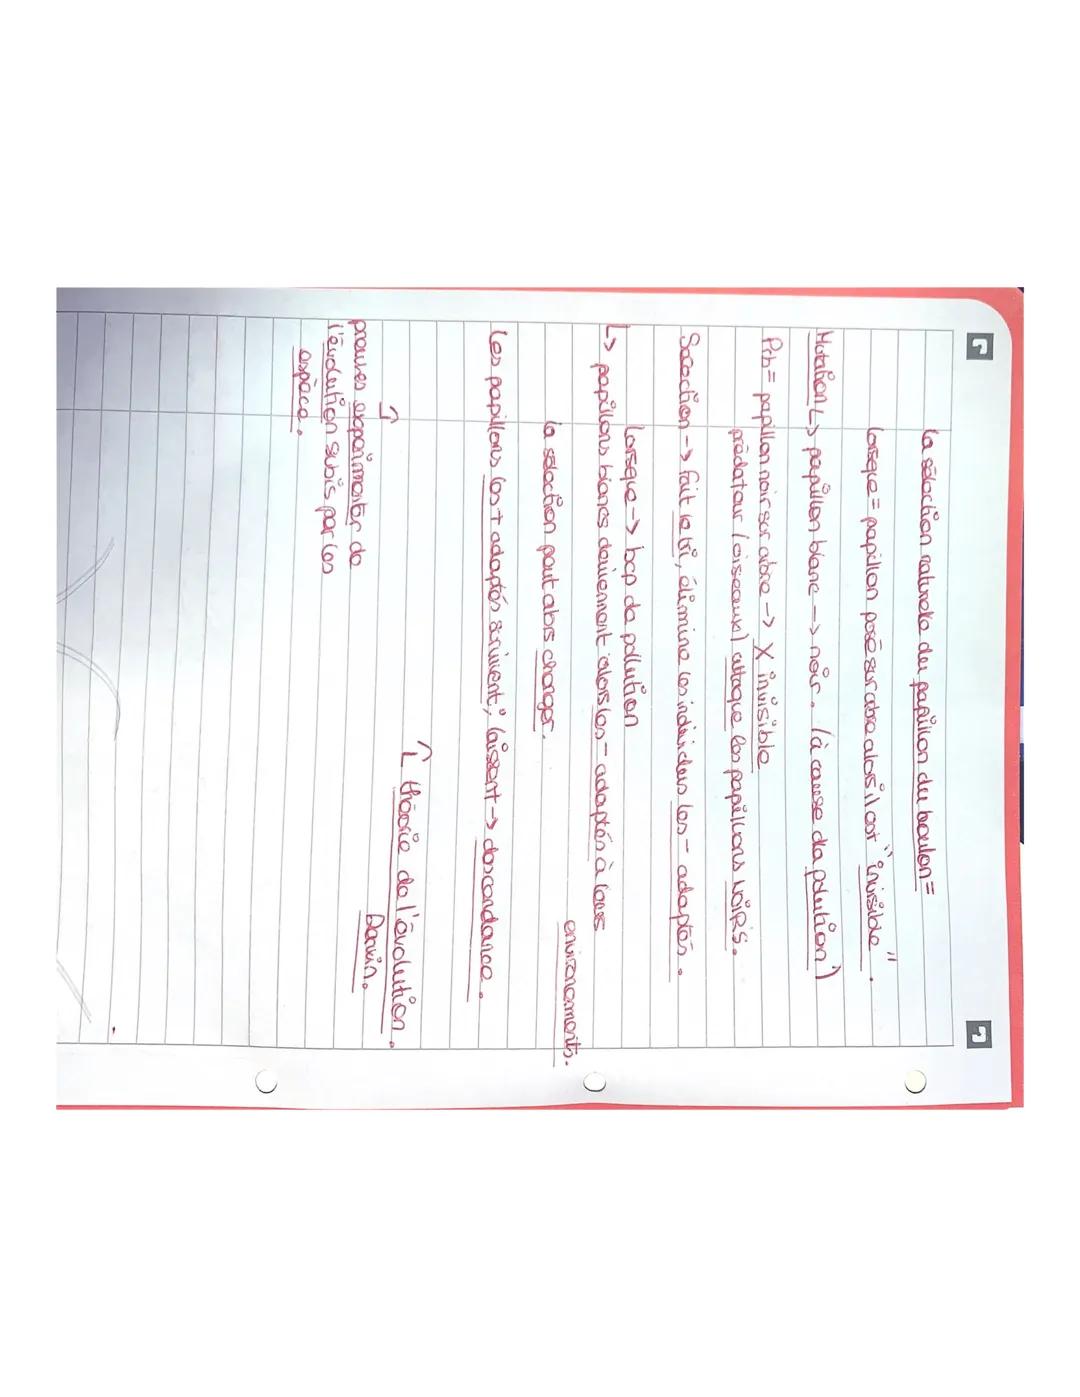 la sélection naturele du papillon du boulon =
lorsque = papillon posé sur abre alors il est "invisible".
Mutation ↳ papillon blanc -> noir. (à cause d la polution)
Prb = papillon noir sur abre -> X invisible
prédateur (oiseaux) attaque les papillons NOIRS.
Sélection -> fait le tri, élimine les individus les - adaptés.
Lorsque -> bcp de pollution
↳ papillons blancs deviennent alors les - adaptés à leurs
environements.
la sélection peut alors changer.
Les papillons les + adaptés survivent; laissent -> descendance.
↑ théorie de l'évolution.
Darwin.
↑
preuves experimenter de
l'évolution subis par les
espèce.